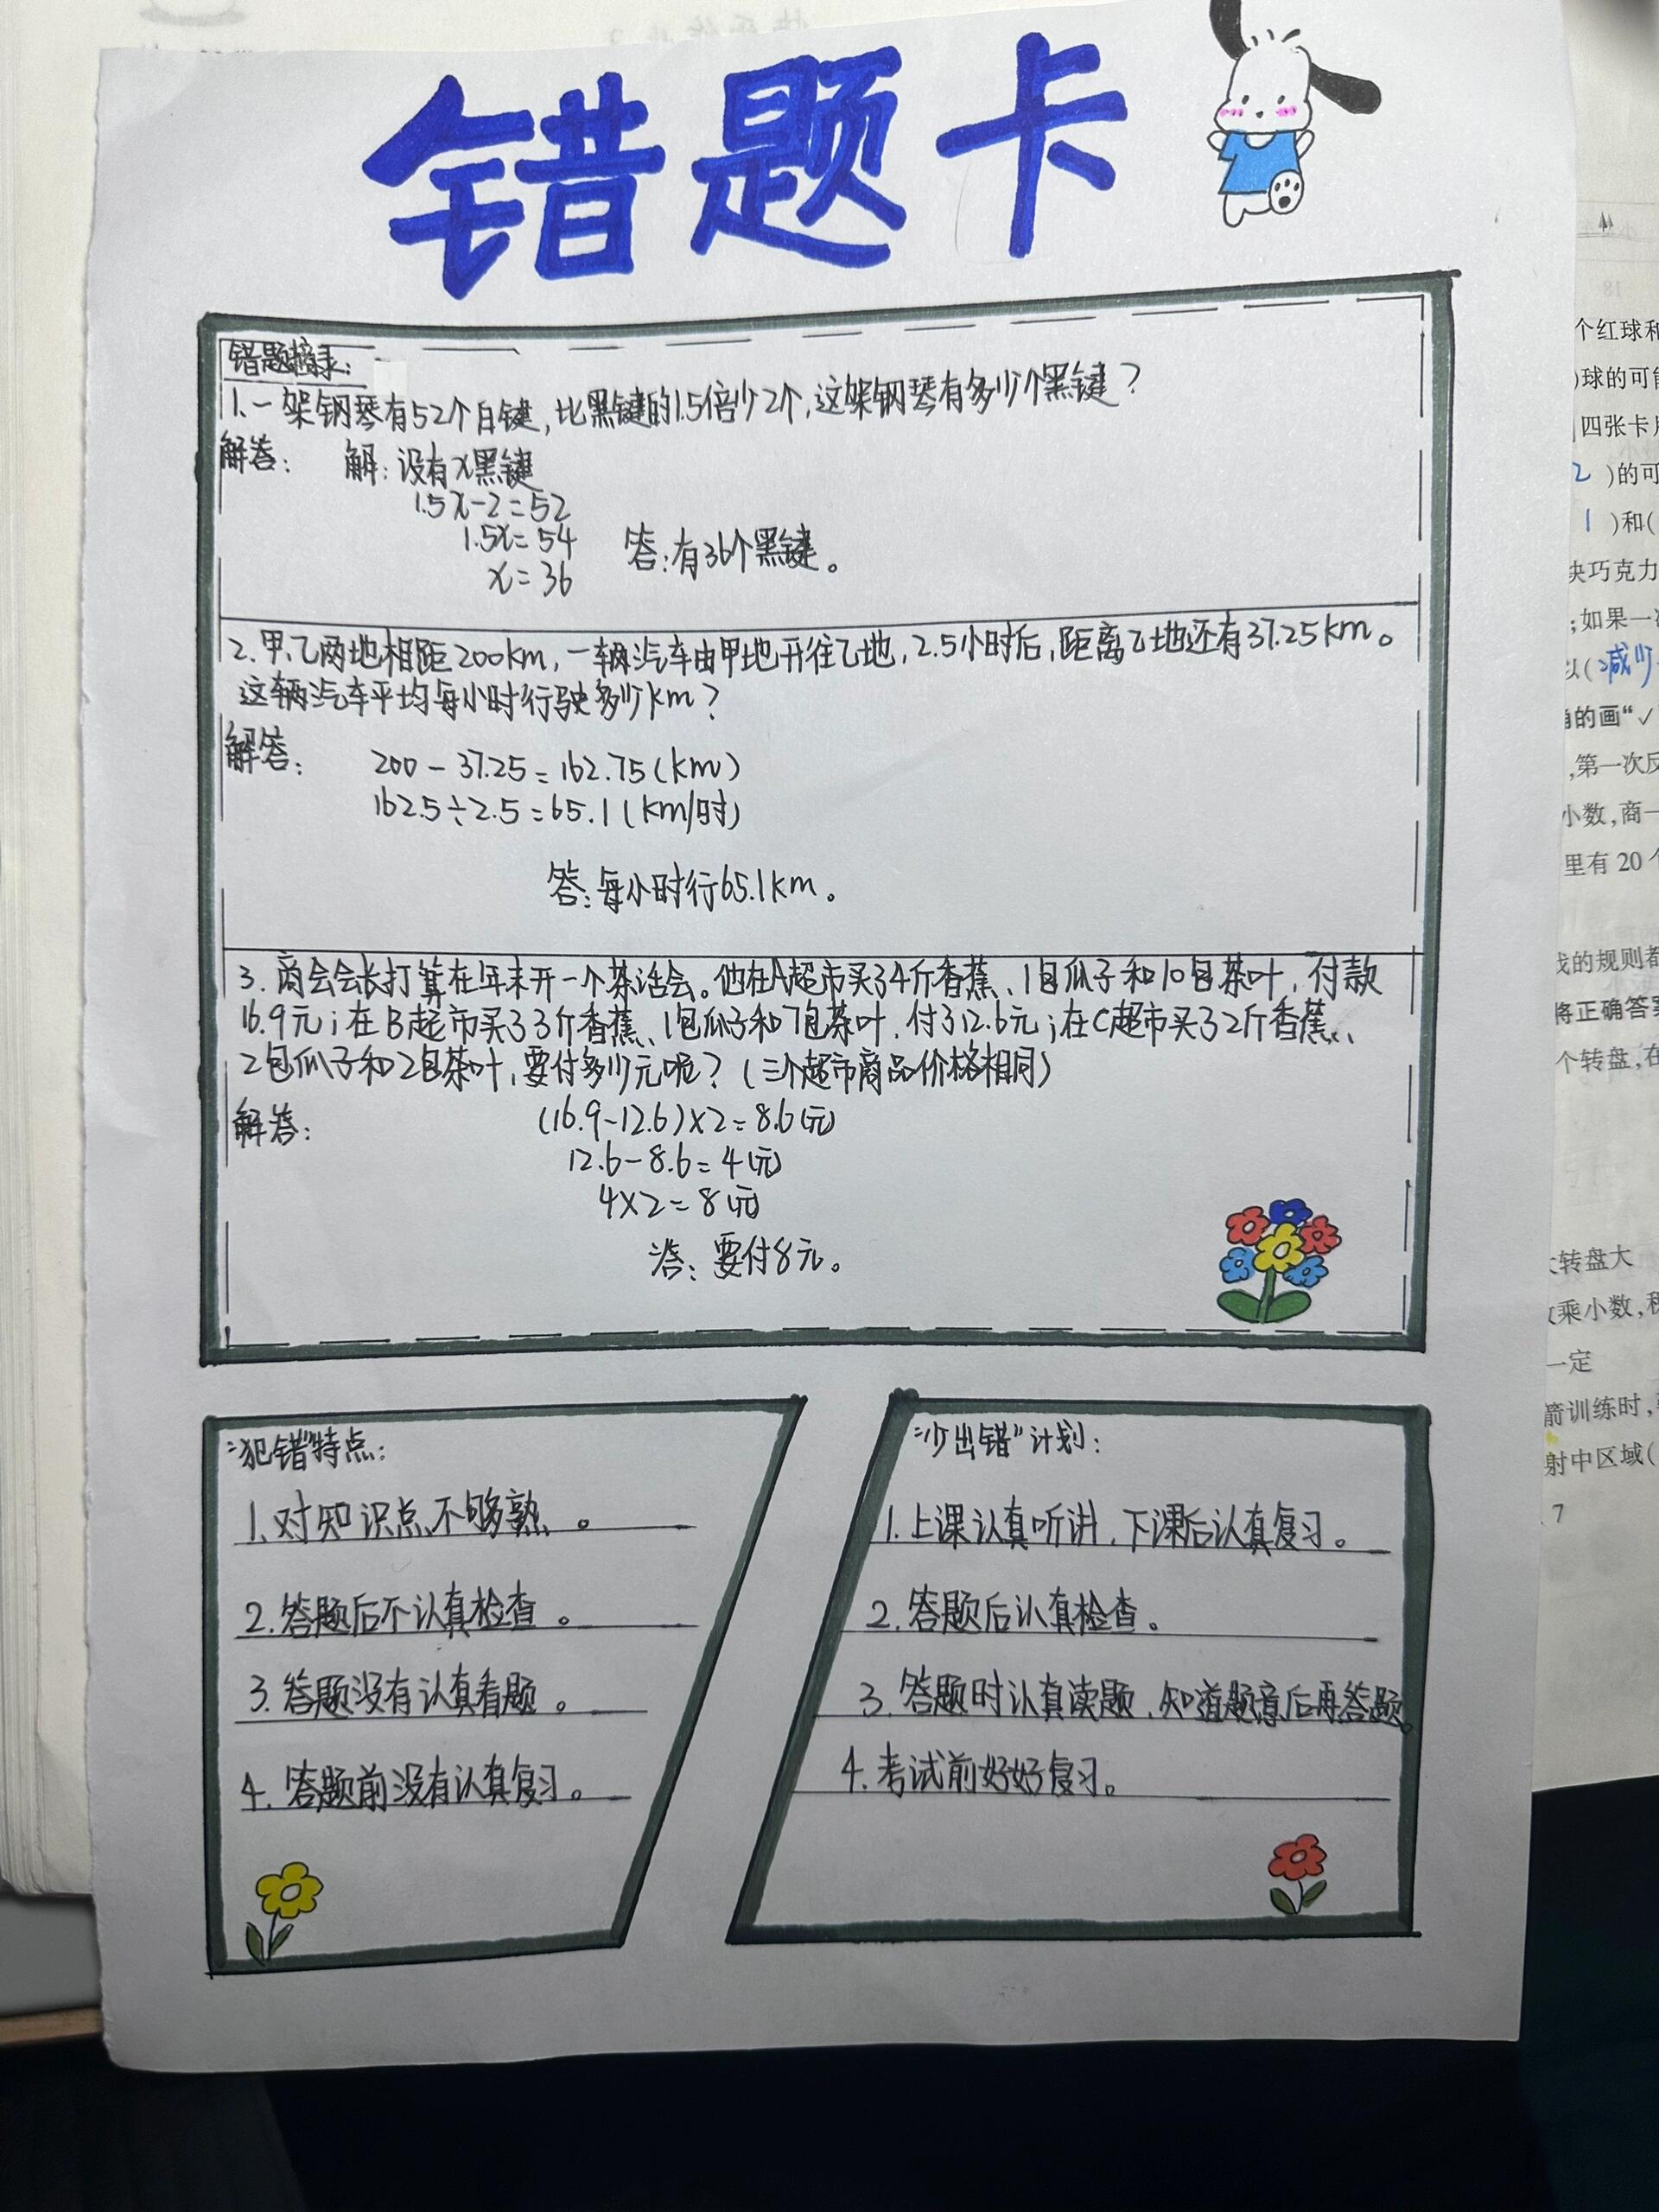 错题卡
错题摘录:
1.一架钢琴有52个白键,比黑键的1.5倍少2个,这架钢琴有多少个黑键?
解答: 解:设有x黑键
1.5x-2=52
1.5x=54
x=36
答:有36个黑键。
2.甲、乙两地相距200km,一辆汽车由甲地开往乙地,2.5小时后,距离乙地还有37.25km。
这辆汽车平均每小时行驶多少km?
解答: 200-37.25=162.75(km)
162.5÷2.5=65.1(km/时)
答:每小时行65.1km。
3.商会会长打算在年末开一个茶话会。他在A超市买了4斤香蕉、1包瓜子和10包茶叶,付款
16.9元;在B超市买了3斤香蕉、1包瓜子和7包茶叶,付了12.6元;在C超市买了2斤香蕉、
2包瓜子和2包茶叶,要付多少元呢?(三个超市商品价格相同)
解答: (16.9-12.6)×2=8.6(元)
12.6-8.6=4(元)
4×2=8(元)
答:要付8元。
"犯错"特点:
1.对知识点不够熟。
2.答题后不认真检查。
3.答题没有认真看题。
4.答题前没有认真复习。
"少出错"计划:
1.上课认真听讲,下课后认真复习。
2.答题后认真检查。
3.答题时认真读题,知道题意后再答题。
4.考试前好好复习。
个红球和
)球的可能
四张卡片
2 )的可
1 )和(
块巧克力
;如果一次
以(减少
的画“✓
,第一次反
小数,商一
里有20个
戏的规则都
将正确答案
个转盘,在
转盘大
乘小数,积
一定
箭训练时,
射中区域(
7